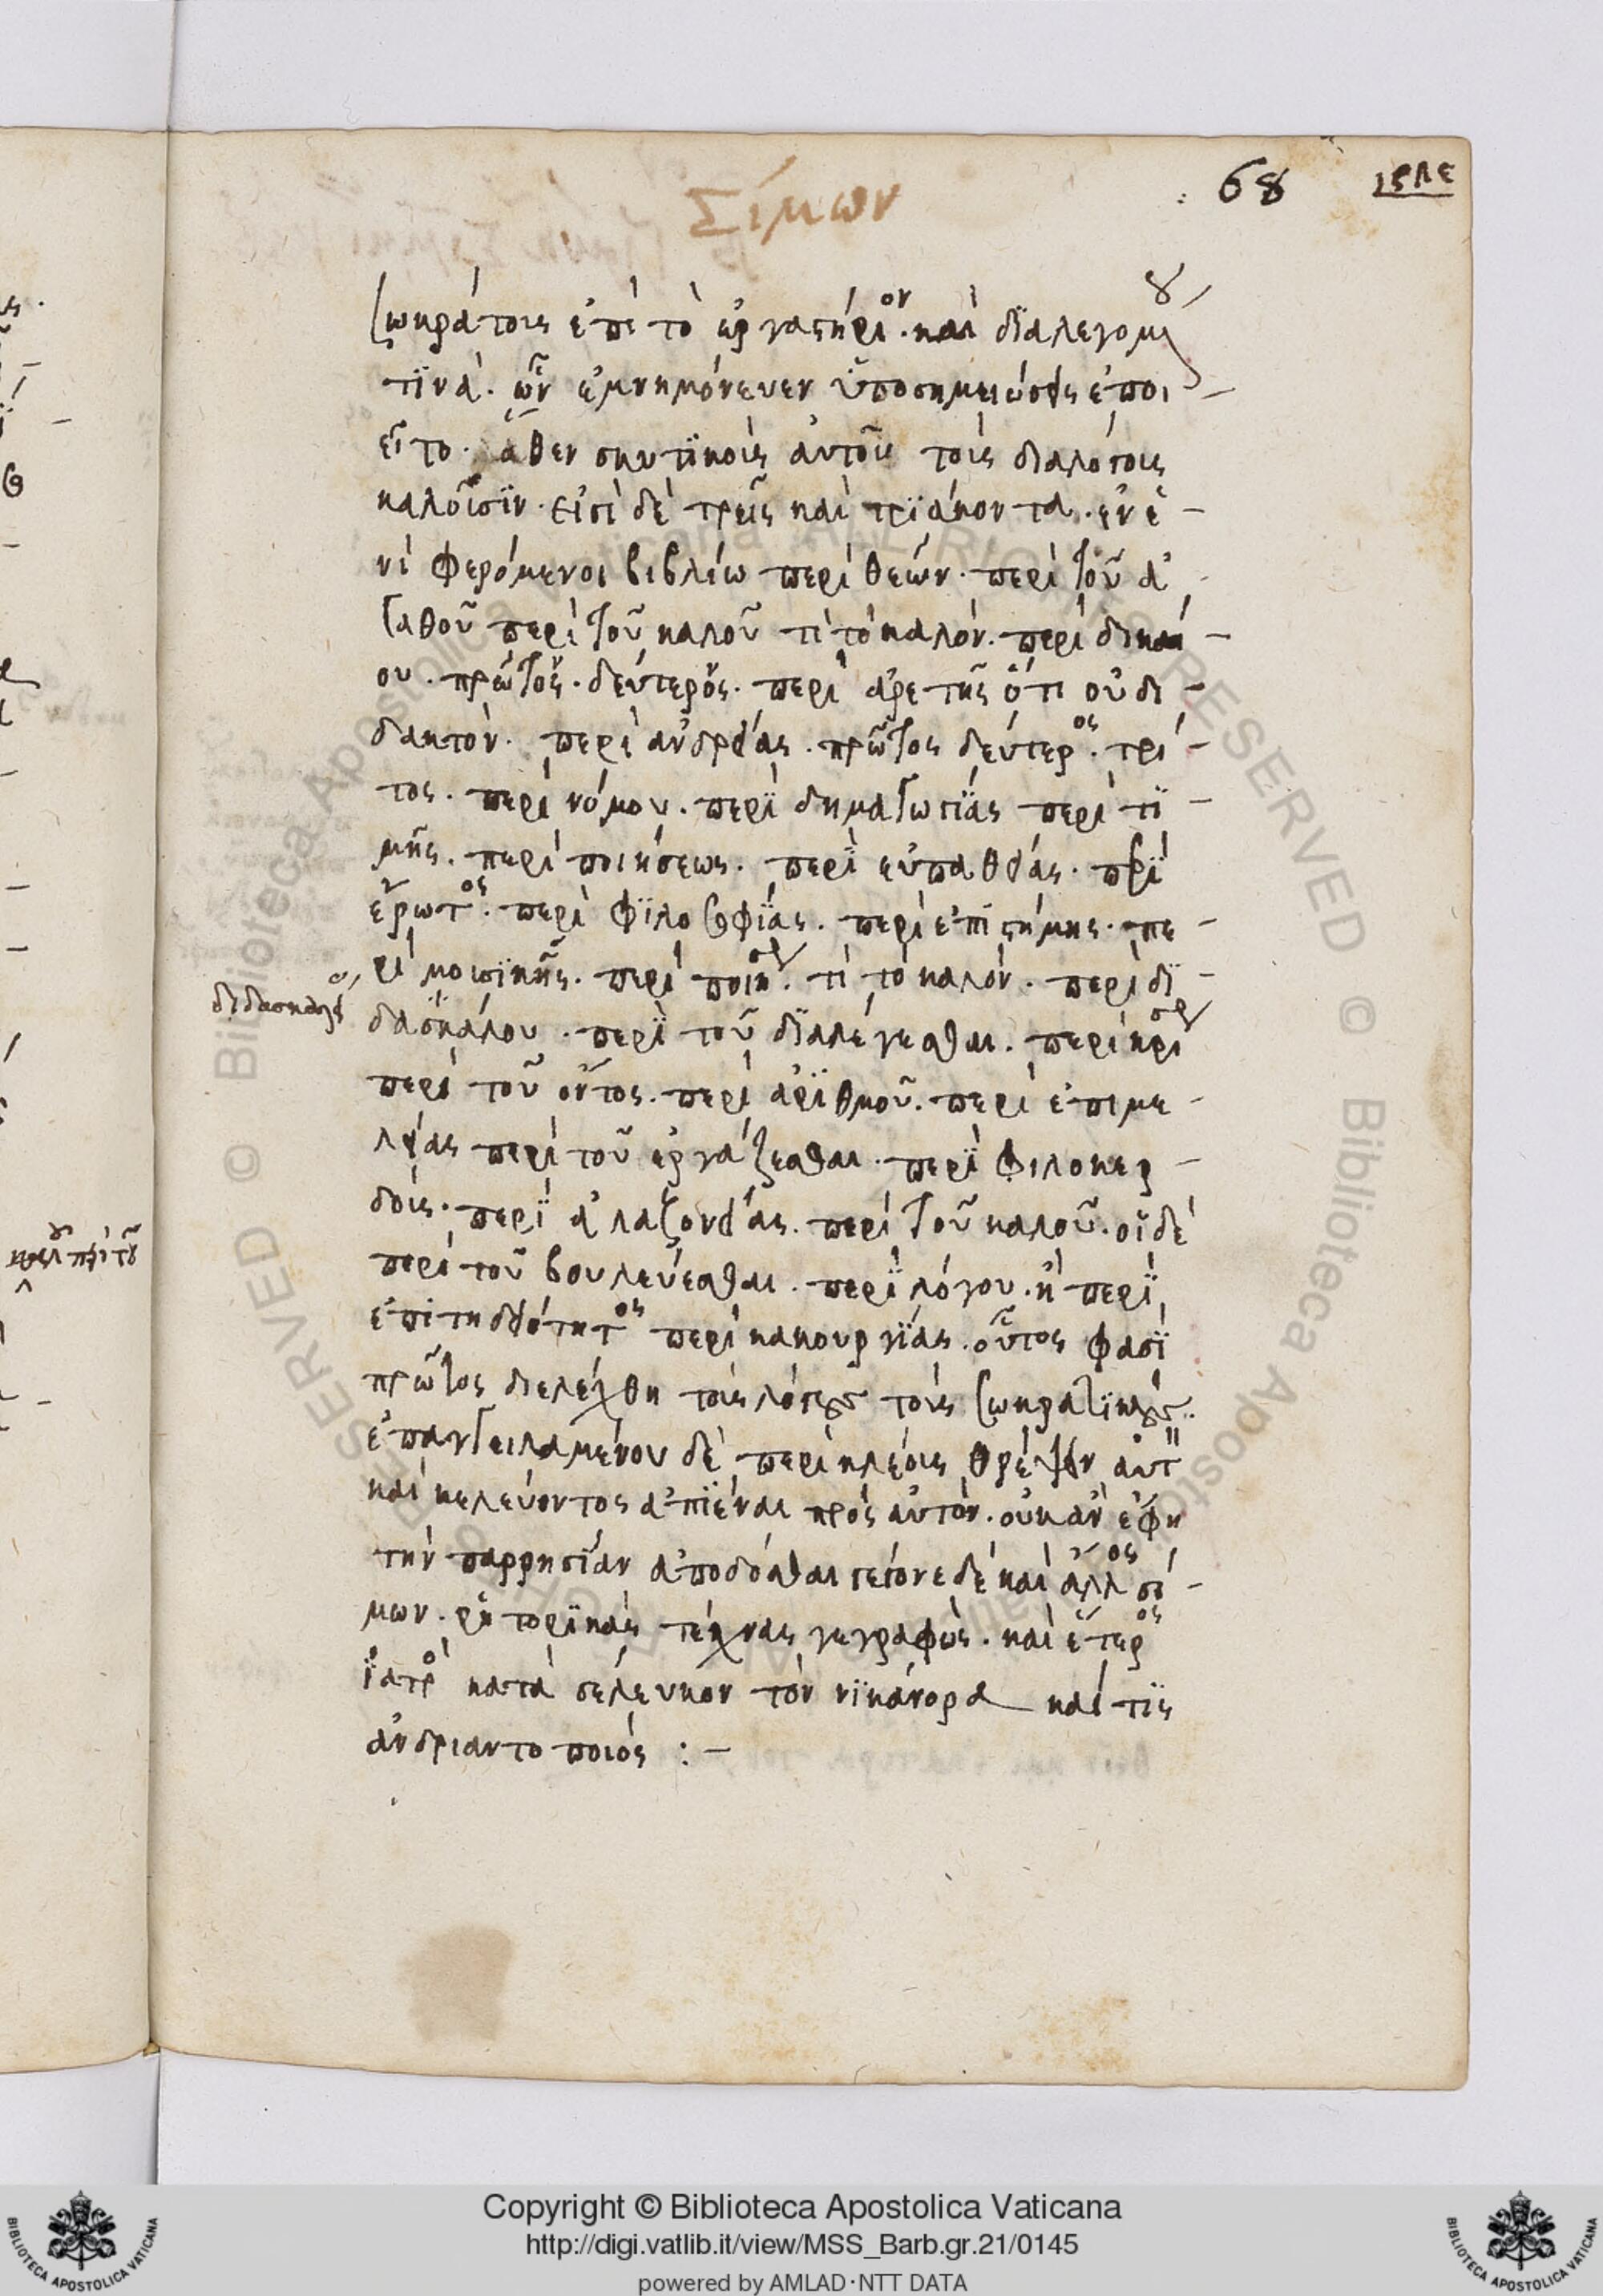 Σίμων
68
Σωκράτους ἐπὶ τὸ ἐργαστήριον. καὶ διαλεγομένου
τινά. ὧν ἐμνημόνευεν ὑποσημειώσεις ἐποι
εῖτο. ὅθεν σκυτικοὺς αὐτοῦ τοὺς διαλόγους
καλοῦσιν. εἰσὶ δὲ τρεῖς καὶ τριάκοντα. ἐν ἑ
νὶ φερόμενοι βιβλίω περὶ θεῶν. περὶ τοῦ ἀ
γαθοῦ περὶ τοῦ καλοῦ τί τὸ καλόν. περὶ δικαί
ου. πρῶτος. δεύτερος. περὶ ἀρετῆς ὅτι οὐ δι
δακτόν. περὶ ἀνδρείας. πρῶτος δεύτερος. τρί
τος. περὶ νόμου. περὶ δημαγωγίας περὶ τι
μῆς. περὶ ποιήσεως. περὶ εὐπαθείας. περὶ
ἔρωτος. περὶ φιλοσοφίας. περὶ ἐπιστήμης. πε
ρὶ μουσικῆς. περὶ ποιήσεως. τί τὸ καλόν. περὶ δι
δασκάλου. περὶ τοῦ διαλέγεσθαι. περὶ κρίσεως
περὶ τοῦ ὄντος. περὶ ἀριθμοῦ. περὶ ἐπιμε
λείας περὶ τοῦ ἐργάζεσθαι. περὶ φιλοκερ
δοῦς. περὶ ἀλαζονείας. περὶ τοῦ καλοῦ. οἱ δὲ
περὶ τοῦ βουλεύεσθαι. περὶ λόγου. ἢ περὶ
ἐπιτηδειότητος περὶ κακουργίας. οὗτος φασὶ
πρῶτος διελέχθη τοὺς λόγους τοὺς Σωκρατικούς.
ἐπαγγειλαμένου δὲ περικλέους θρέψειν αὐτ
καὶ κελεύοντος ἀπιέναι πρὸς αὐτόν. οὐκ ἂν ἔφη
τὴν παρρησίαν ἀποδόσθαι γέγονε δὲ καὶ ἄλλος σί
μων. ῥητορικὰς τέχνας γεγραφώς. καὶ ἕτερος
ἰατρὸ κατὰ σέλευκον τὸν νικάνορα καί τις
ἀνδριαντοποιός :–
Copyright © Biblioteca Apostolica Vaticana
http://digi.vatlib.it/view/MSS_Barb.gr.21/0145
powered by AMLAD·NTT DATA
BIBLIOTECA APOSTOLICA VATICANA
BIBLIOTECA APOSTOLICA VATICANA